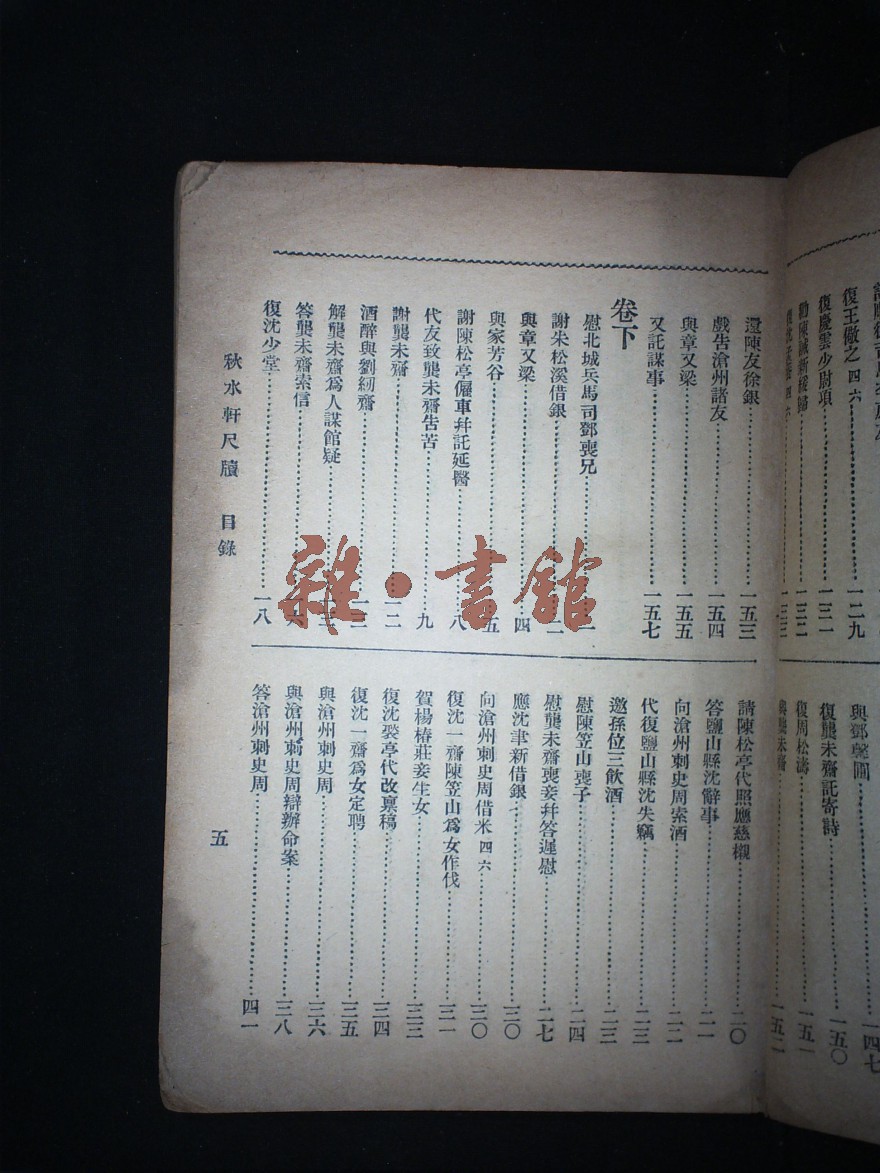 復王儆之 四六⋯⋯一二九
復慶雲少尉項⋯⋯一三一
勸陳誠新緩歸⋯⋯一三二
一三三
與鄧毓圃⋯⋯一四七
復龔未齋託寄詩⋯⋯一五〇
復周松濤⋯⋯一五一
一五二
還陳友徐銀⋯⋯一五三
戲告滄州諸友⋯⋯一五四
與章又梁⋯⋯一五五
又託謀事⋯⋯一五七
卷下
慰北城兵馬司鄧喪兄⋯⋯一
謝朱松溪借銀⋯⋯二
與章又梁⋯⋯四
與家芳谷⋯⋯五
謝陳松亭僱車幷託延醫⋯⋯八
代友致龔未齋告苦⋯⋯九
謝龔未齋⋯⋯一二
酒醉與劉紉齋⋯⋯一三
解龔未齋爲人謀館疑
答龔未齋索信⋯⋯一六
復沈少堂⋯⋯一八
請陳松亭代照應慈櫬⋯⋯二〇
答鹽山縣沈辭事⋯⋯二一
向滄州刺史周索酒⋯⋯二二
代復鹽山縣沈失竊⋯⋯二三
邀孫位三飲酒⋯⋯二三
慰陳笠山喪子⋯⋯二四
慰龔未齋喪妾幷答遲慰⋯⋯二七
應沈聿新借銀⋯⋯三〇
向滄州刺史周借米 四六⋯⋯三〇
復沈一齋陳笠山爲女作伐⋯⋯三一
賀楊椿莊妾生女⋯⋯三三
復沈裴亭代改稟稿⋯⋯三四
復沈一齋爲女定聘⋯⋯三五
與滄州刺史周⋯⋯三六
與滄州刺史周辯辦命案⋯⋯三八
答滄州刺史周⋯⋯四一
秋水軒尺牘 目錄
五
雜·書館